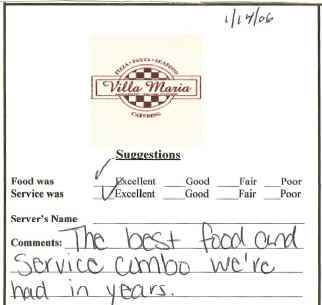 1/14/06
PIZZA • PASTA • SEAFOOD
Villa Maria
CATERING
Suggestions
Food was ✓Excellent ___Good ___Fair ___Poor
Service was ✓Excellent ___Good ___Fair ___Poor
Server's Name
Comments: The best food and
Service combo we're
had in years.